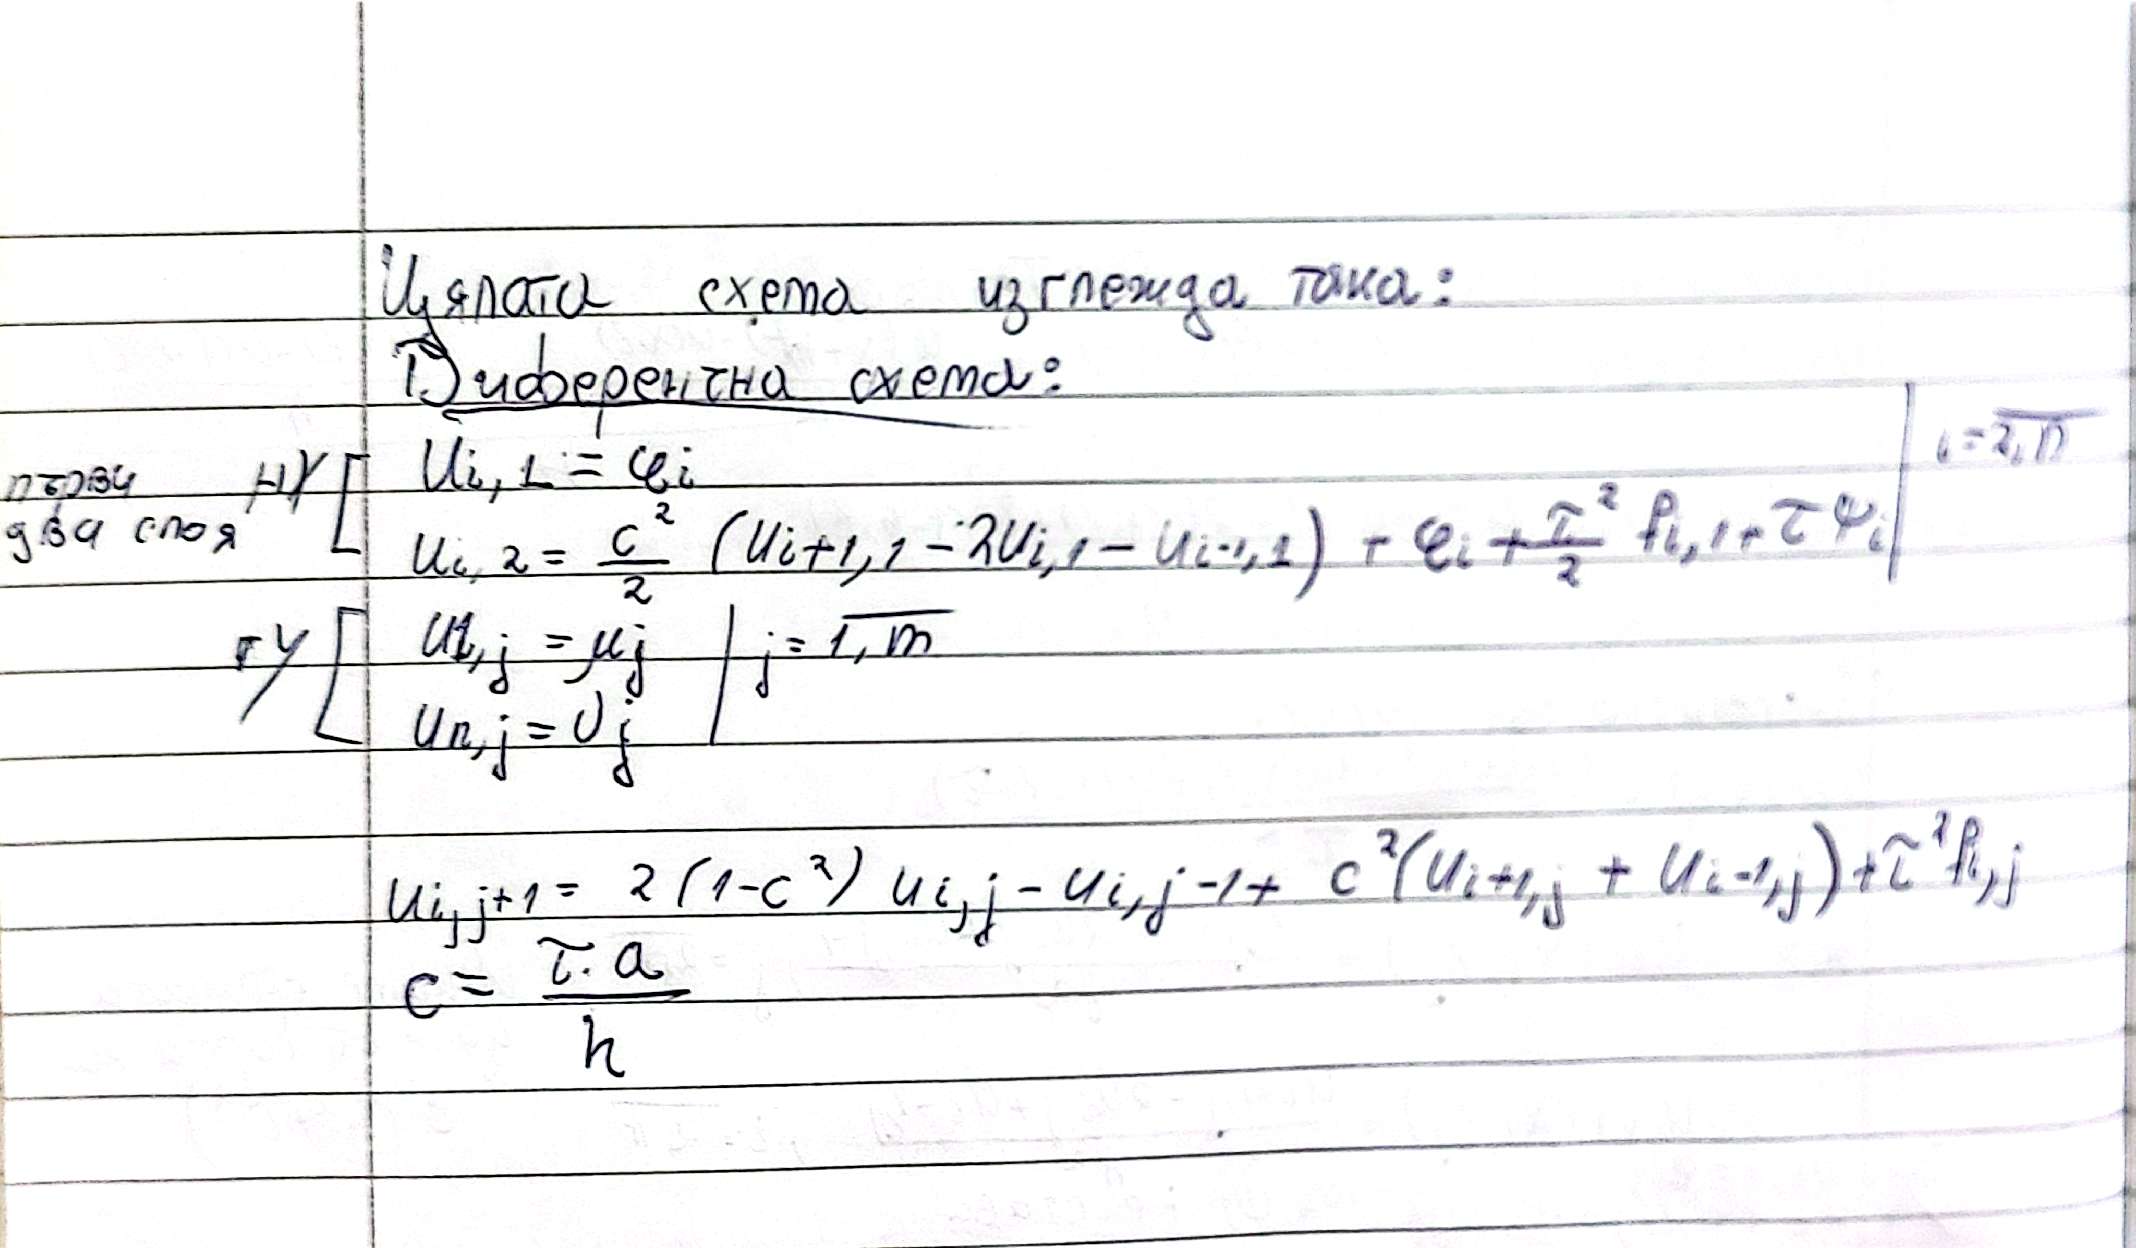 Цялата схема изглежда така:
Диференчна схема:
първи два слоя НУ [ u_{i,1} = φ_i | i = \overline{2,n}
u_{i,2} = \frac{c^2}{2} (u_{i+1,1} - 2u_{i,1} - u_{i-1,1}) + φ_i + \frac{τ^2}{2} f_{i,1} + τ ψ_i
ГУ [ u_{1,j} = μ_j | j = \overline{1,m}
u_{n,j} = ν_j
u_{i,j+1} = 2(1-c^2) u_{i,j} - u_{i,j-1} + c^2(u_{i+1,j} + u_{i-1,j}) + τ^2 f_{i,j}
c = \frac{τ.a}{h}